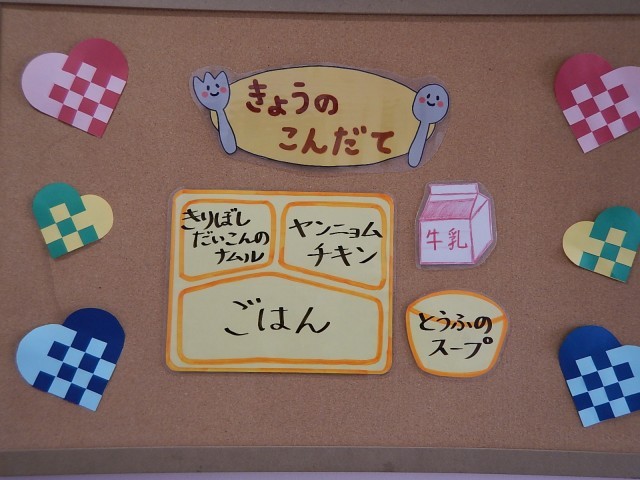 きょうの
こんだて
きりぼし
だいこんの
ナムル
ヤンニョム
チキン
牛乳
ごはん
とうふの
スープ